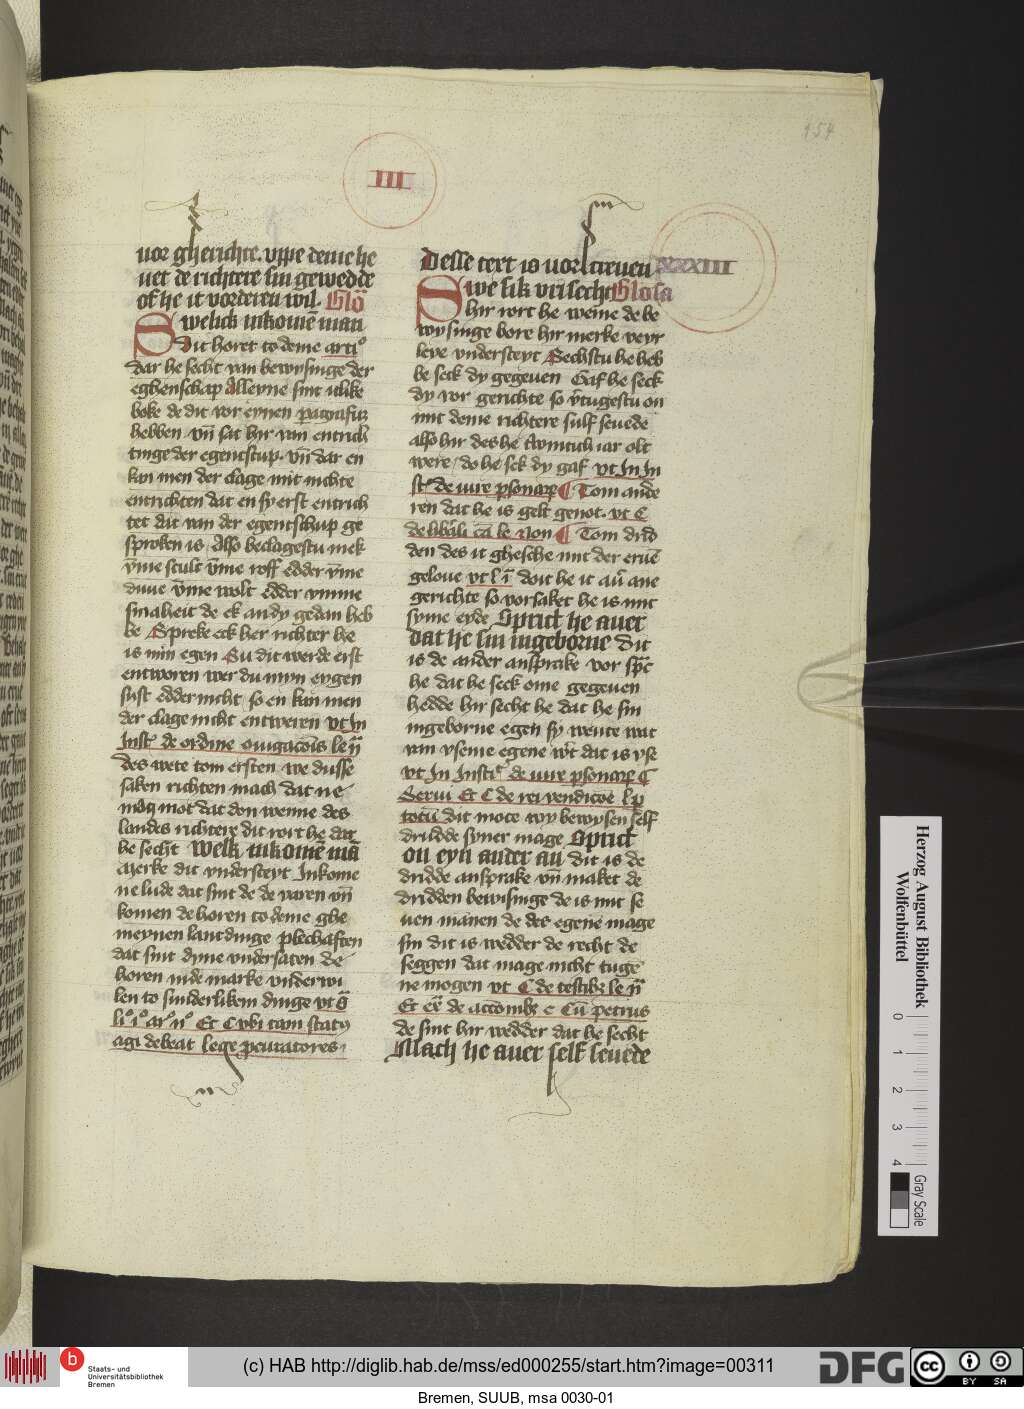 154
III
XXXIII
vor gherichte. vppe deme he
uet de richtere sin gewedde
of he it vorderen wil. Glo
Swelick inkomē man
Dit horet to deme arti
dar he secht van bewysinge der
eghenschap Alleyne sint itlike
boke de dit vor eynen
hebben vn̄ sat hir van entrich
tinge der egentscup. vn̄ dar en
kan men der clage mit nichte
entrichten dat en sy erst entrich
tet dat van der egentschup ge
sproken is Also beclagestu mek
v̄me scult v̄me roff edder v̄me
duue v̄me wolt edder vmme
smaheit de ek an dy gedan heb
be Spreke eck her richter he
is min egen Su dit werde erst
entworen wer du myn eygen
sist edder nicht so en kan men
der clage nicht entweren vt In
Inst de ordine
des wete tom ersten we dusse
saken richten mach dat ne
mag mot dat don wenne des
landes richtere dit rort he dar
he secht Welk inkomē mā
Merke dit vnderstept Inkome
ne lude dat sint de de varen vn̄
komen de horen to deme ghe
meynen lantdinge plechaften
dat sint dyne vndersaten de
horen in de marke vnderwi
len to sunderlikem dinge vt
Et C vbi tam
agi debeat lege
Desse text is vor
Swe sik vri secht Glosa
hir rort he weme de be
wysinge bore hir merke veyr
leye vndersteyt Sechstu he heb
be seck dy gegeuen Gaf he seck
dy vor gerichte so
mit deme richtere sulf seuede
also hir des he twintich iar olt
were do he sek dy gaf vt In In
de iure
Tom ande
ren dat he is gelt genot. vt C
de
Tom drid
den des it ghesche mit der eruē
geloue vt l
doit he it an̄ ane
gerichte so vorsaket he is mit
syme eyde Sprict he auer
dat he sin ingeborne Dit
is de ander ansprake vor
he dat he seck ome gegeuen
hedde hir secht he dat he sin
ingeborne egen sy wente wat
van vseme egene dat is vse
vt In Insti de iure
Serui Et C de rei
dit mote wy bewysen self
dridde syner mage Sprict
on eyn ander an dit is de
dridde ansprake vn̄ maket de
dridden bewisinge de is mit se
uen mānen de des egene mage
sin dit is wedder de recht de
seggen dat mage nicht tuge
ne mogen vt C de
petrus
de sint hir wedder dat he secht
Mach he auer self seuede
Herzog August Bibliothek
Wolfenbüttel
0 1 2 3 4
Gray Scale
b
Staats- und
Universitätsbibliothek
Bremen
(c) HAB http://diglib.hab.de/mss/ed000255/start.htm?image=00311
DFG
cc
BY SA
Bremen, SUUB, msa 0030-01